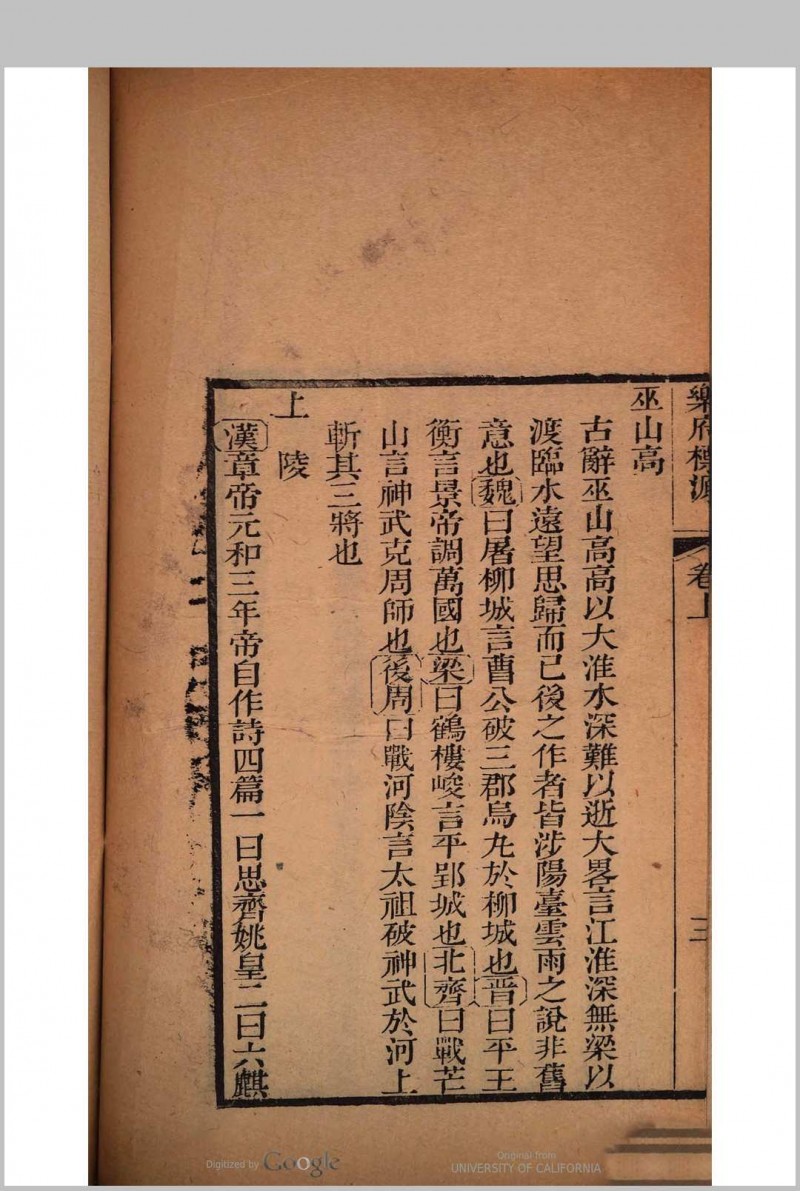 樂府標源 卷上 三
巫山高
古辭巫山高高以大淮水深難以逝大畧言江淮深無梁以
渡臨水遠望思歸而已後之作者皆涉陽臺雲雨之說非舊
意也魏曰屠柳城言曹公破三郡烏九於柳城也晋曰平王
衡言景帝調萬國也梁曰鶴樓峻言平郢城也北齊曰戰芒
山言神武克周師也後周曰戰河陰言太祖破神武於河上
斬其三將也
上陵
漢章帝元和三年帝自作詩四篇一曰思齊姚皇二曰六麒
Digitized by Google
Original from
UNIVERSITY OF CALIFORNIA